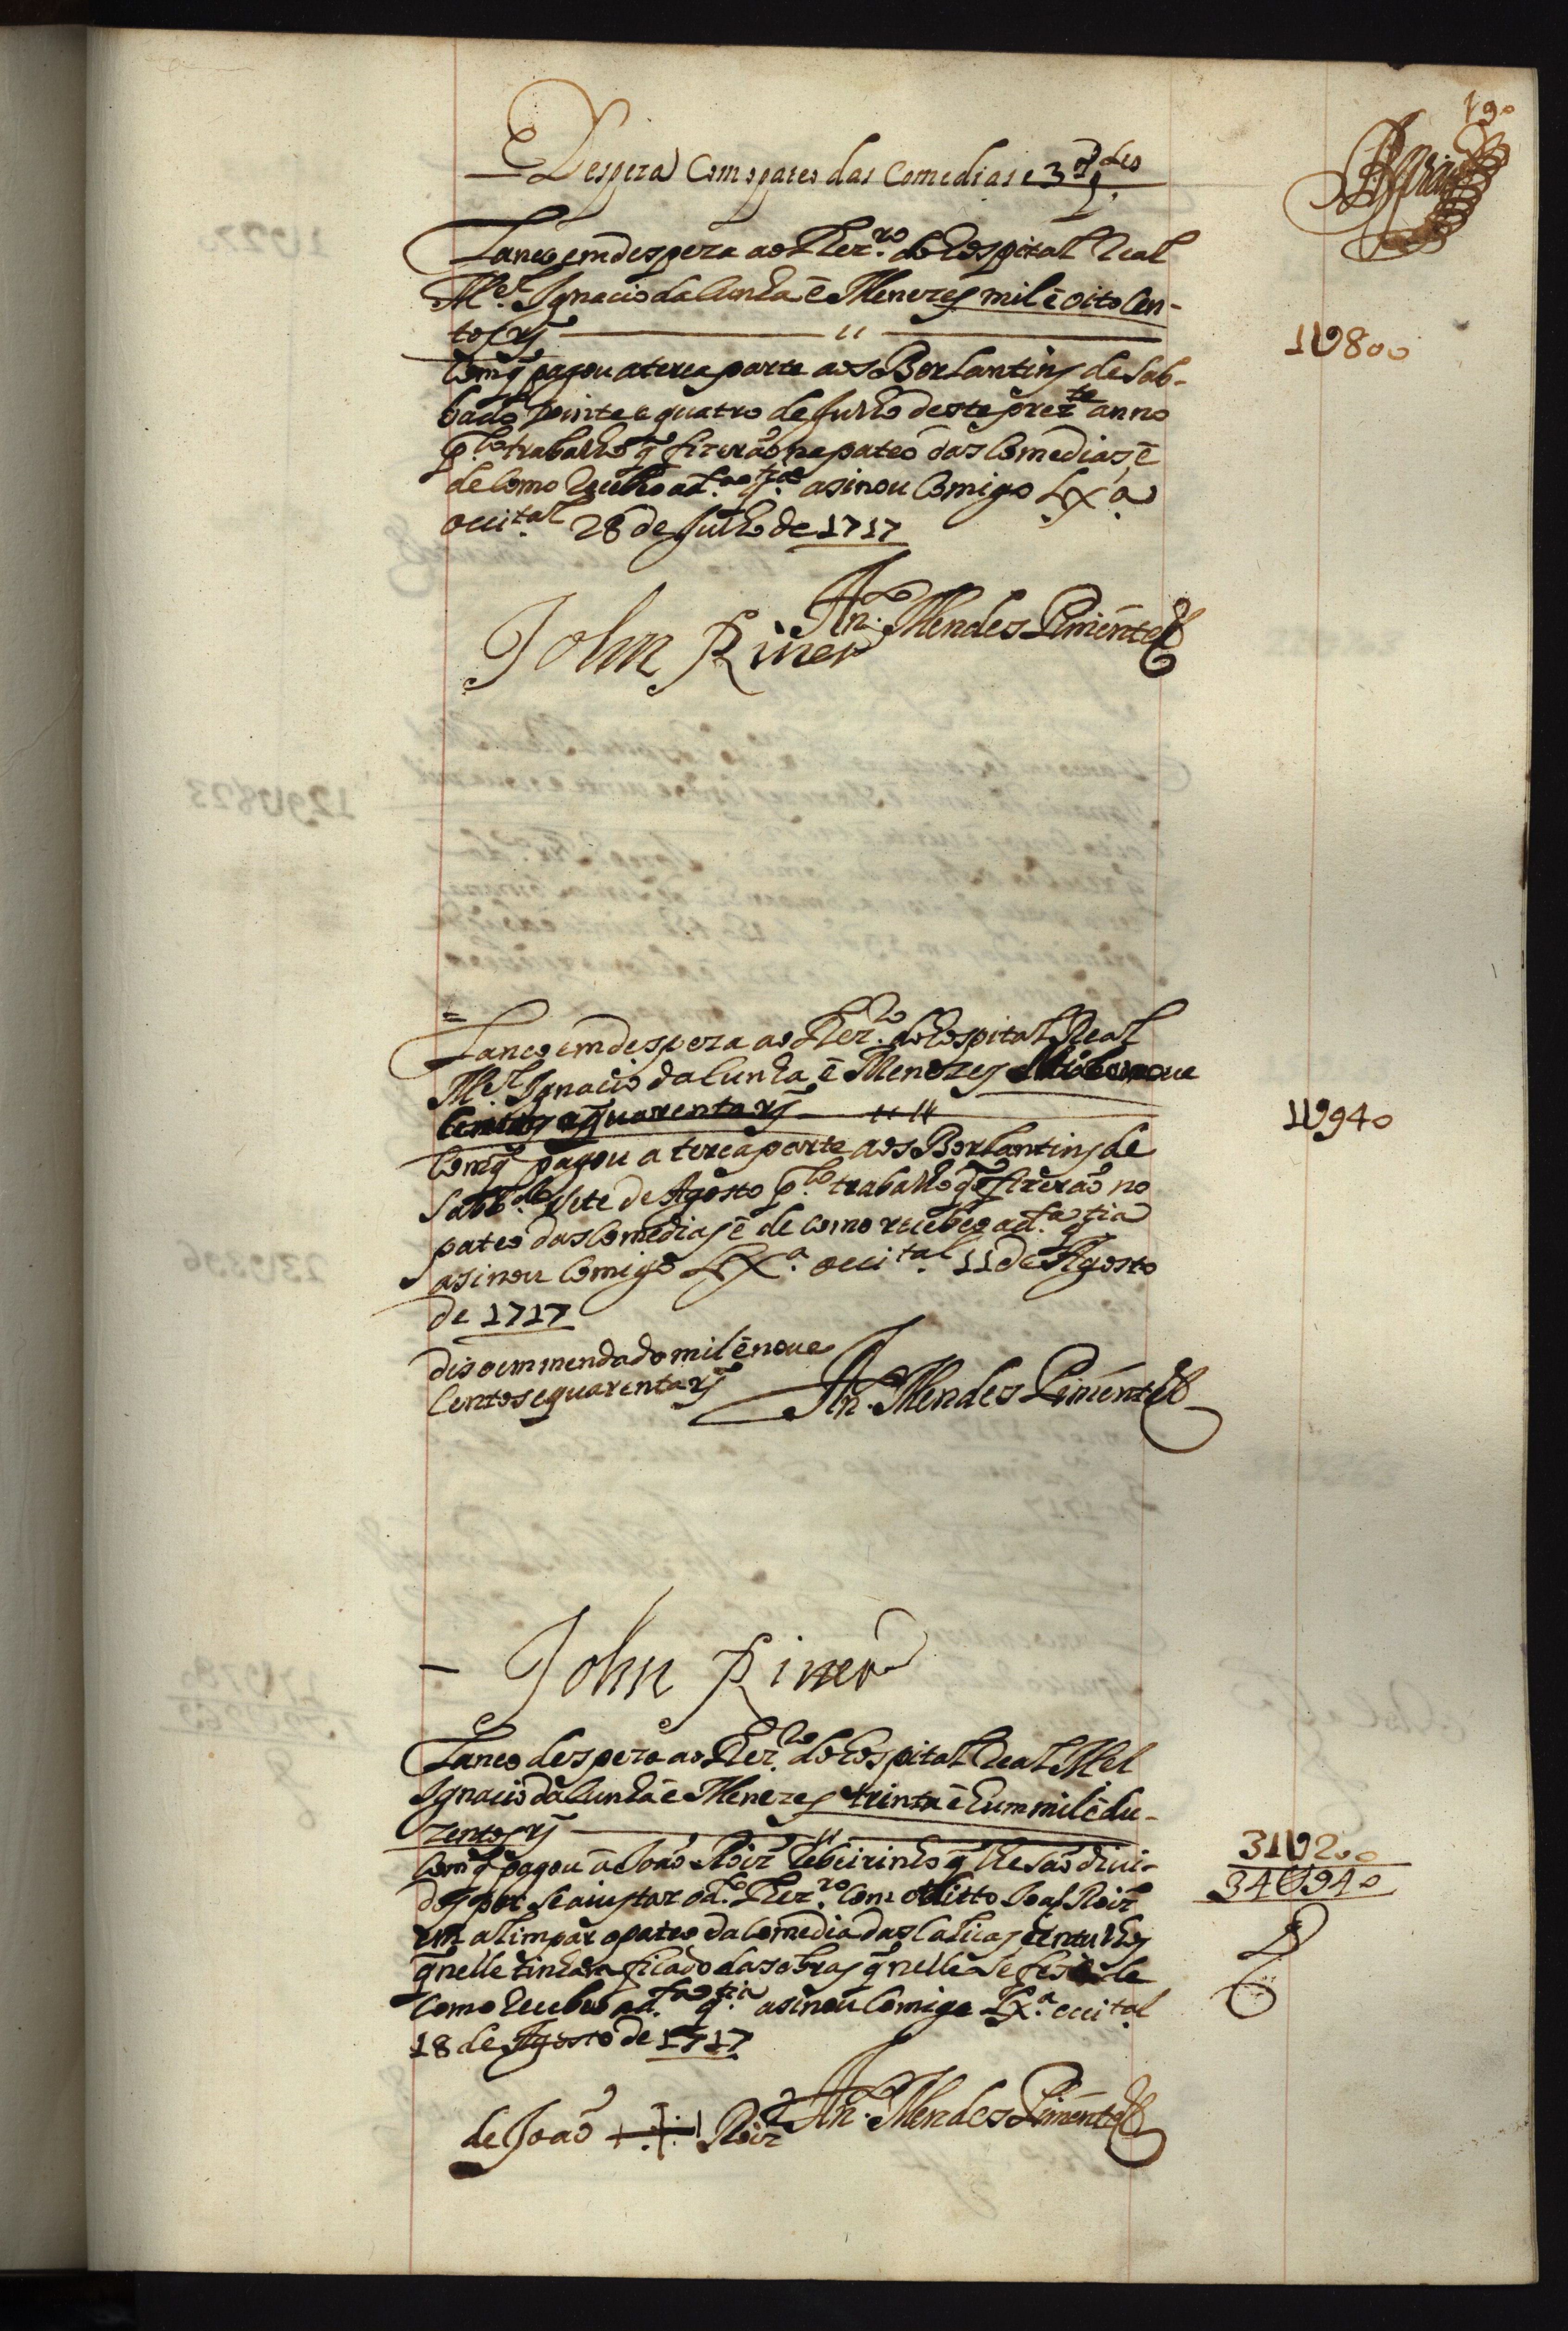 190
Despeza Com o pateo das Comedias e 3
Lanco em despeza ao Thez.ro do Hospital Real
M.el Ignacio da Cunha ē Menezes mil ē oito Cen-
tos rs̃ ——— " ———
1U800
Com q̃ pagou a terca parte aos Borlantins de Sab-
bado vinte e quatro de Julho deste prez.te anno
p.lo trabalho q̃ fizerão no pateo das Comedias, ē
de Como Recebeo a d.a q.tia asinou Comigo Lx.a
occi.tal 28 de Julho de 1717
An.to Mendes Pimentel
John Riner
=
Lanco em despeza ao Thez.ro do Hospital Real
M.el Ignacio da Cunha ē Menezes Mil e nove
Centos e quarenta rs̃ ——— " " ———
1U940
Com q̃ pagou a terca parte aos Borlantins de
Sabb.do Sete de Agosto p.lo trabalho q̃ fizerão no
pateo das Comedias ē de como recebeo a d.a q.tia
asinou Comigo Lx.a occi.tal 11 de Agosto
de 1717
dis o emmendado mil ē nove
Centos e quarenta rs̃
An.to Mendes Pimentel
— John Riner
Lanco despeza ao Thez.ro do Hospital Real Mel
Ignacio da Cunha ē Menezes trinta ē hum mil ē du-
zentos rs̃ ——— " ———
31U200
Com q̃ pagou ā João Roiz Rebeirinho q̃ lhe são divi-
34U940
dos por Se aiustar o d.o Thez.ro Com o ditto Joaõ Roiz
em alimpar o pateo da Comedia das Calicas ē entulhos
q̃ nelle tinha ficado das obras q̃ nelle Se fes ē de
Como Recebeo a d.a q.tia asinou Comigo Lx.a occi.tal
18 de Agosto de 1717
An.to Mendes Pimentel
de João + Roiz